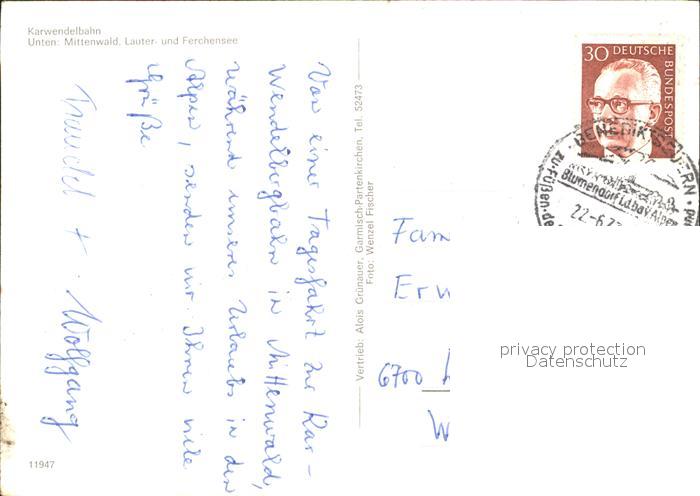 Karwendelbahn
Unten: Mittenwald, Lauter- und Ferchensee
Von einer Tagesfahrt zur Kar-
wendelbergbahn in Mittenwald,
während unseres Urlaubs in den
Alpen, senden wir Ihnen viele
Grüße
Traudel + Wolfgang
11947
Vertrieb: Alois Grünauer, Garmisch-Partenkirchen, Tel. 52473
Foto: Wenzel Fischer
30 DEUTSCHE
BUNDESPOST
BENEDIKTBEUERN
zu-Füßen-de
Blumendorf i.d. bay. Alpen
22-6.7
Fam
Er
6700
W
privacy protection
Datenschutz